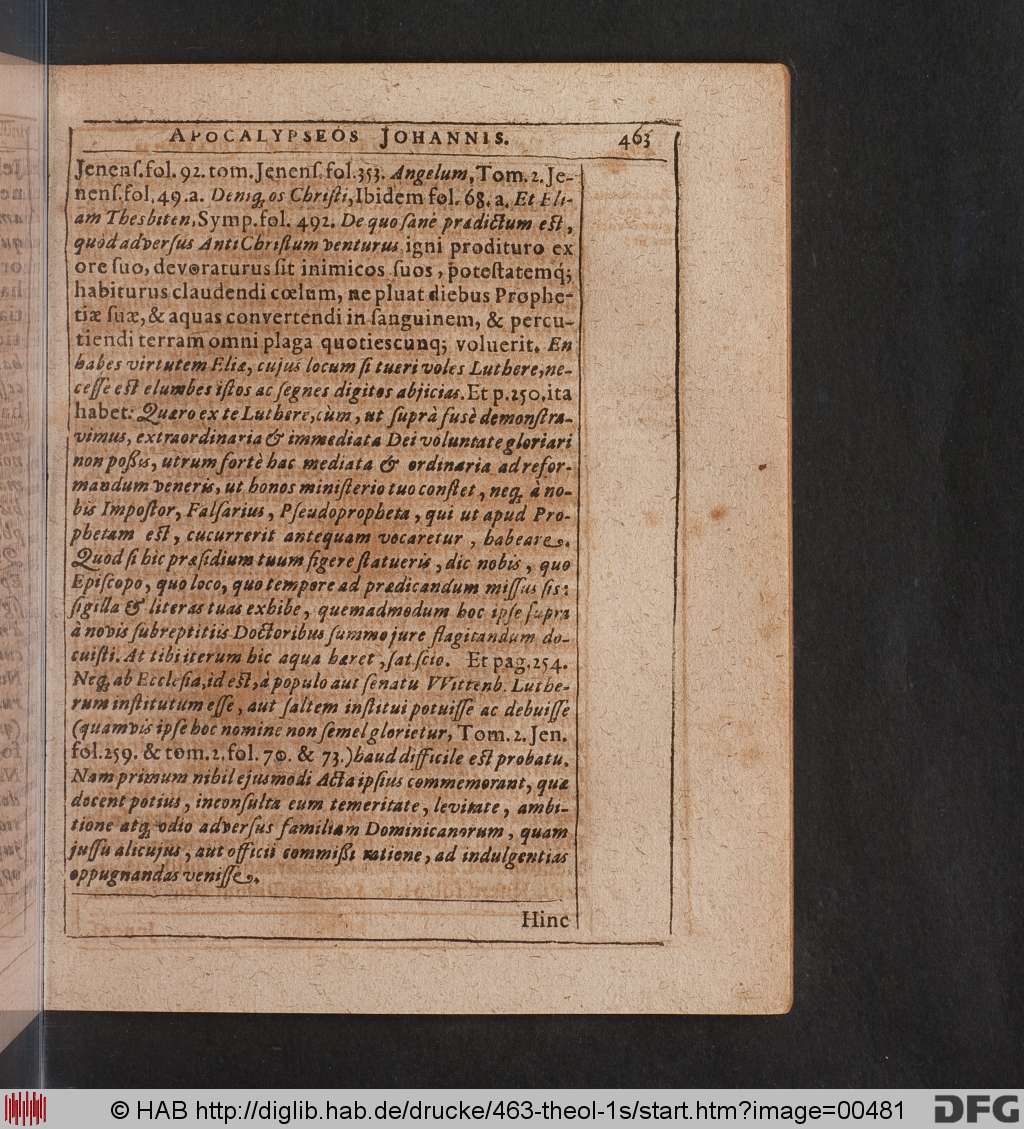 APOCALYPSEOS JOHANNIS. 463
Jenenſ.fol. 92. tom. Jenenſ. fol. 353. Angelum, Tom. 2. Je-
nenſ. fol, 49. a. Deniq́; os Chriſti, Ibidem fol. 68. a. Et Eli-
am Thesbiten, Symp. fol. 492. De quo ſanè prædictum eſt,
quòd adverſus AntiChriſtum venturus igni prodituro ex
ore ſuo, devoraturus ſit inimicos ſuos, poteſtatemq́;
habiturus claudendi cœlum, ne pluat diebus Prophe-
tiæ ſuæ, & aquas convertendi in ſanguinem, & percu-
tiendi terram omni plaga quotieſcunq; voluerit. En
habes virtutem Eliæ, cujus locum ſi tueri voles Luthere, ne-
ceſſe eſt elumbes iſtos ac ſegnes digitos abjicias. Et p. 250. ita
habet: Quæro ex te Luthere, cùm, ut ſuprà fusè demonſtra-
vimus, extraordinaria & immediata Dei voluntate gloriari
non poßis, utrum fortè hac mediata & ordinaria ad refor-
mandum veneris, ut honos miniſterio tuo conſtet, neq́; à no-
bis Impoſtor, Falſarius, Pſeudopropheta, qui ut apud Pro-
phetam eſt, cucurrerit antequam vocaretur, habeare.
Quod ſi hic præſidium tuum figere ſtatueris, dic nobis, quo
Epiſcopo, quo loco, quo tempore ad prædicandum miſſus ſis:
ſigilla & literas tuas exhibe, quemadmodum hoc ipſe ſupra
à novis ſubreptitiis Doctoribus ſummo jure flagitandum do-
cuiſti. At tibi iterum hic aqua hæret, ſat ſcio. Et pag. 254.
Neq́; ab Eccleſia, id eſt, à populo aut ſenatu VVittenb. Luthe-
rum inſtitutum eſſe, aut ſaltem inſtitui potuiſſe ac debuiſſe
(quamvis ipſe hoc nomine non ſemel glorietur, Tom. 2. Jen.
fol. 259. & tom. 2. fol. 70. & 73.) haud difficile eſt probatu.
Nam primum nihil ejuſmodi Acta ipſius commemorant, quæ
docent potius, inconſulta eum temeritate, levitate, ambi-
tione atq́; odio adverſus familiam Dominicanorum, quam
juſſu alicujus, aut officii commißi ratione, ad indulgentias
oppugnandas veniſſe.
Hinc
© HAB http://diglib.hab.de/drucke/463-theol-1s/start.htm?image=00481 DFG